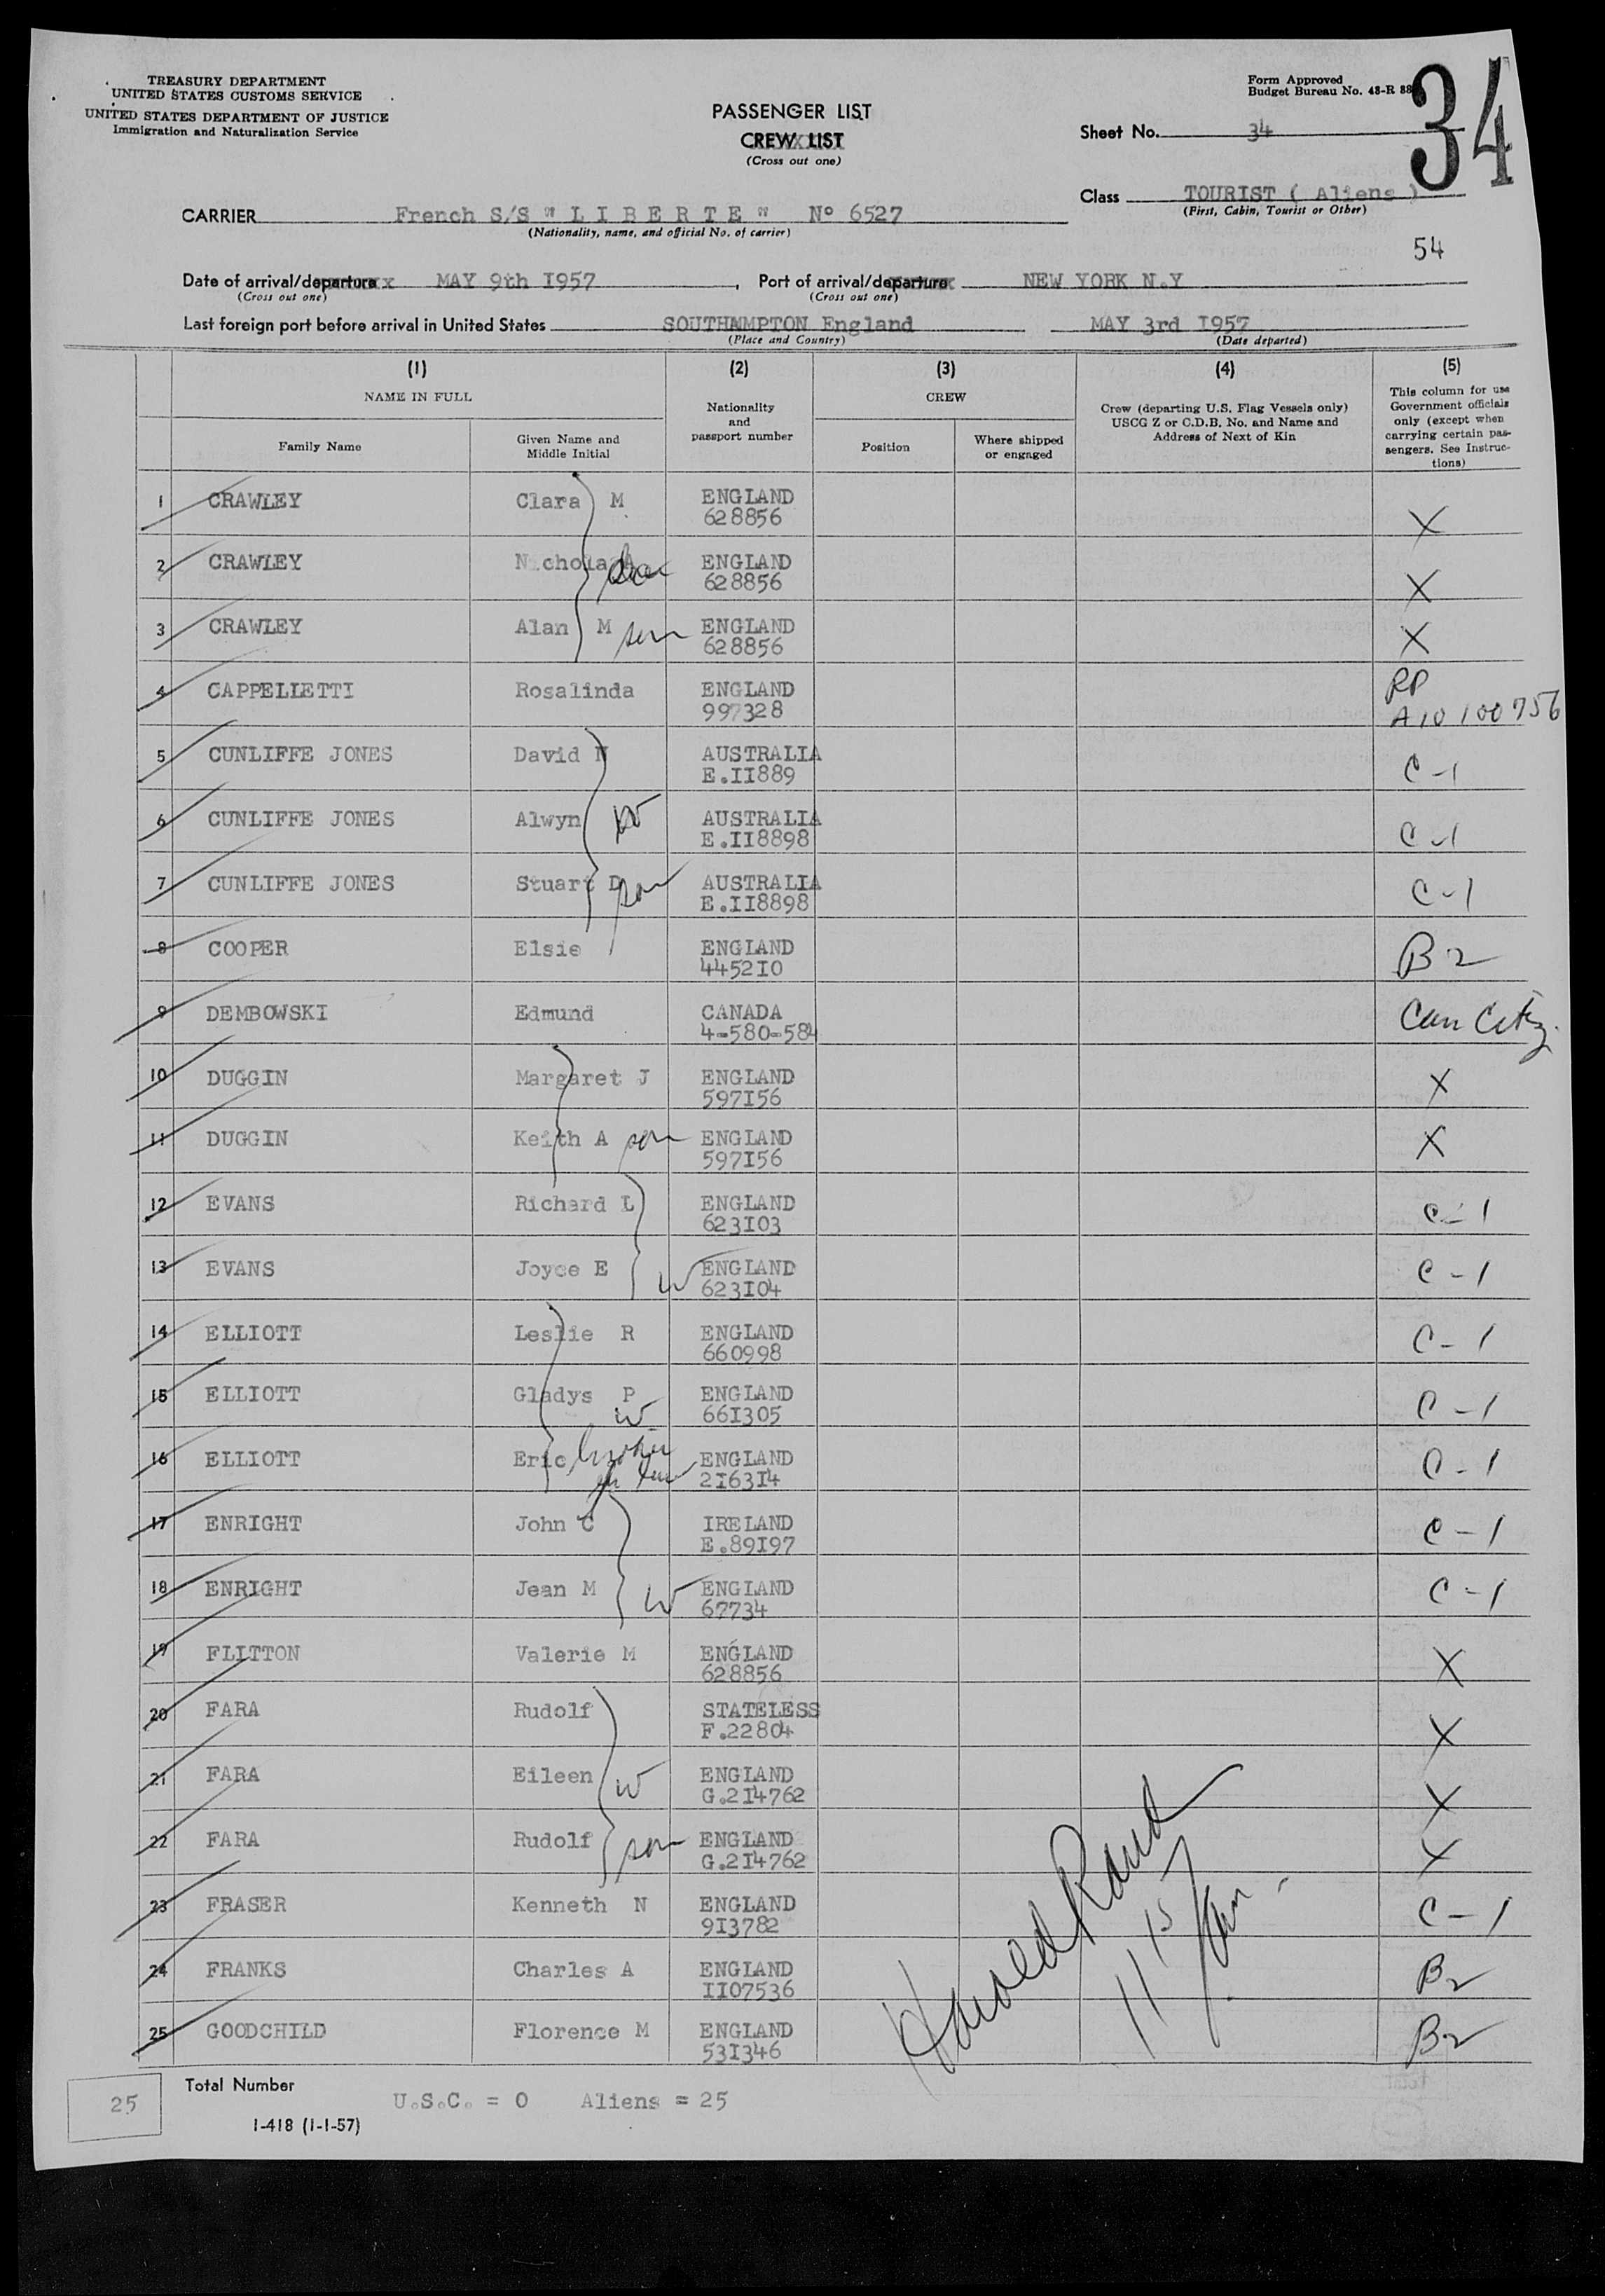 TREASURY DEPARTMENT
UNITED STATES CUSTOMS SERVICE
UNITED STATES DEPARTMENT OF JUSTICE
Immigration and Naturalization Service
PASSENGER LIST
CREW LIST
(Cross out one)
Form Approved
Budget Bureau No. 43-R
34
Sheet No. 34
Class TOURIST ( Aliens )
(First, Cabin, Tourist or Other)
CARRIER French S/S " L I B E R T E " Nº 6527
(Nationality, name, and official No. of carrier)
54
Date of arrival/departure MAY 9th I957, Port of arrival/departure NEW YORK N.Y
(Cross out one) (Cross out one)
Last foreign port before arrival in United States SOUTHAMPTON England MAY 3rd I957
(Place and Country) (Date departed)
(1) (2) (3) (4) (5)
NAME IN FULL
Family Name
Given Name and Middle Initial
Nationality and passport number
CREW
Position
Where shipped or engaged
Crew (departing U.S. Flag Vessels only)
USCG Z or C.D.B. No. and Name and
Address of Next of Kin
This column for use
Government officials
only (except when
carrying certain pas-
sengers. See Instruc-
tions)
1 CRAWLEY Clara M ENGLAND
628856 X
2 CRAWLEY Nichola ENGLAND
628856 X
3 CRAWLEY Alan M son ENGLAND
628856 X
4 CAPPELLETTI Rosalinda ENGLAND
997328 RP
A10 100 756
5 CUNLIFFE JONES David N AUSTRALIA
E.II889 C-1
6 CUNLIFFE JONES Alwyn W AUSTRALIA
E.II8898 C-1
7 CUNLIFFE JONES Stuart D son AUSTRALIA
E.II8898 C-1
8 COOPER Elsie ENGLAND
4452I0 B2
9 DEMBOWSKI Edmund CANADA
4-580-584 Can Citz.
10 DUGGIN Margaret J ENGLAND
597I56 X
11 DUGGIN Keith A son ENGLAND
597I56 X
12 EVANS Richard L ENGLAND
623I03 C-1
13 EVANS Joyce E W ENGLAND
623I04 C-1
14 ELLIOTT Leslie R ENGLAND
660998 C-1
15 ELLIOTT Gladys P W ENGLAND
66I305 C-1
16 ELLIOTT Eric brother in law ENGLAND
2I63I4 C-1
17 ENRIGHT John C IRELAND
E.89I97 C-1
18 ENRIGHT Jean M W ENGLAND
67734 C-1
19 FLITTON Valerie M ENGLAND
628856 X
20 FARA Rudolf STATELESS
F.22804 X
21 FARA Eileen W ENGLAND
G.2I4762 X
22 FARA Rudolf son ENGLAND
G.2I4762 X
23 FRASER Kenneth N ENGLAND
9I3782 C-1
24 FRANKS Charles A ENGLAND
II07536 B2
25 GOODCHILD Florence M ENGLAND
53I346 B2
Harold Rand
11 15 am
25
Total Number
U.S.C. = 0 Aliens = 25
I-418 (1-1-57)